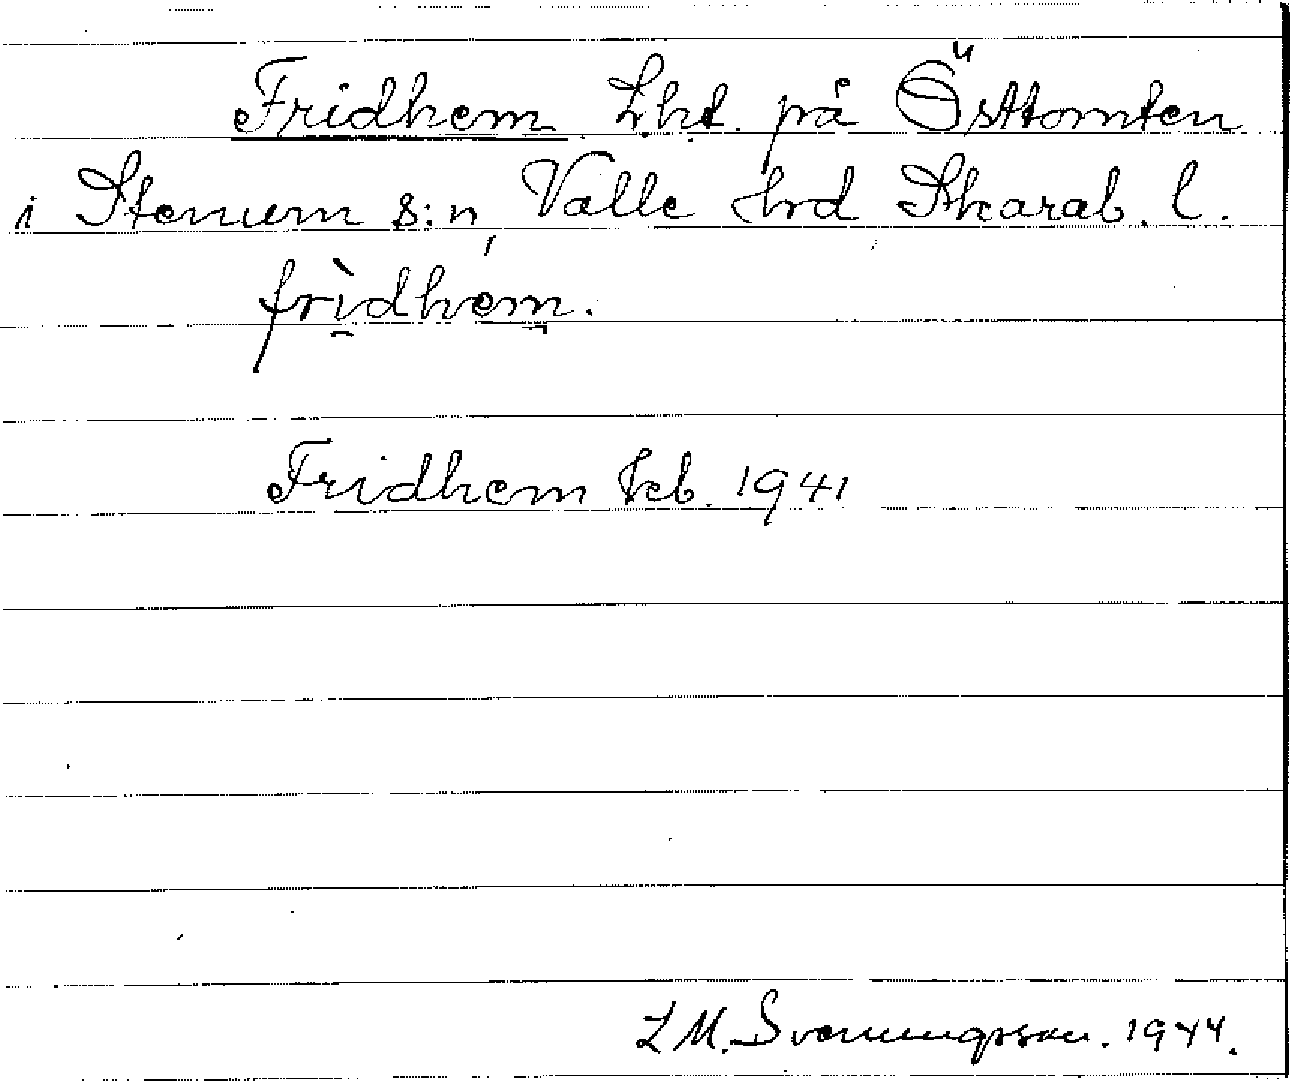 Fridhem Lht. på Östtomten
i Stenum s:n, Valle hrd Skarab. l.
frìdhém.
Fridhem Feb. 1941
L M. Svenungsson. 1944.